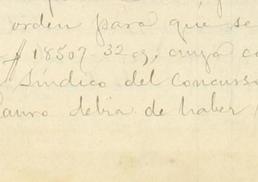 orden para que se
$ 18507-32 cs, cuya co
Síndico del Concurso
Lauro debia de haber